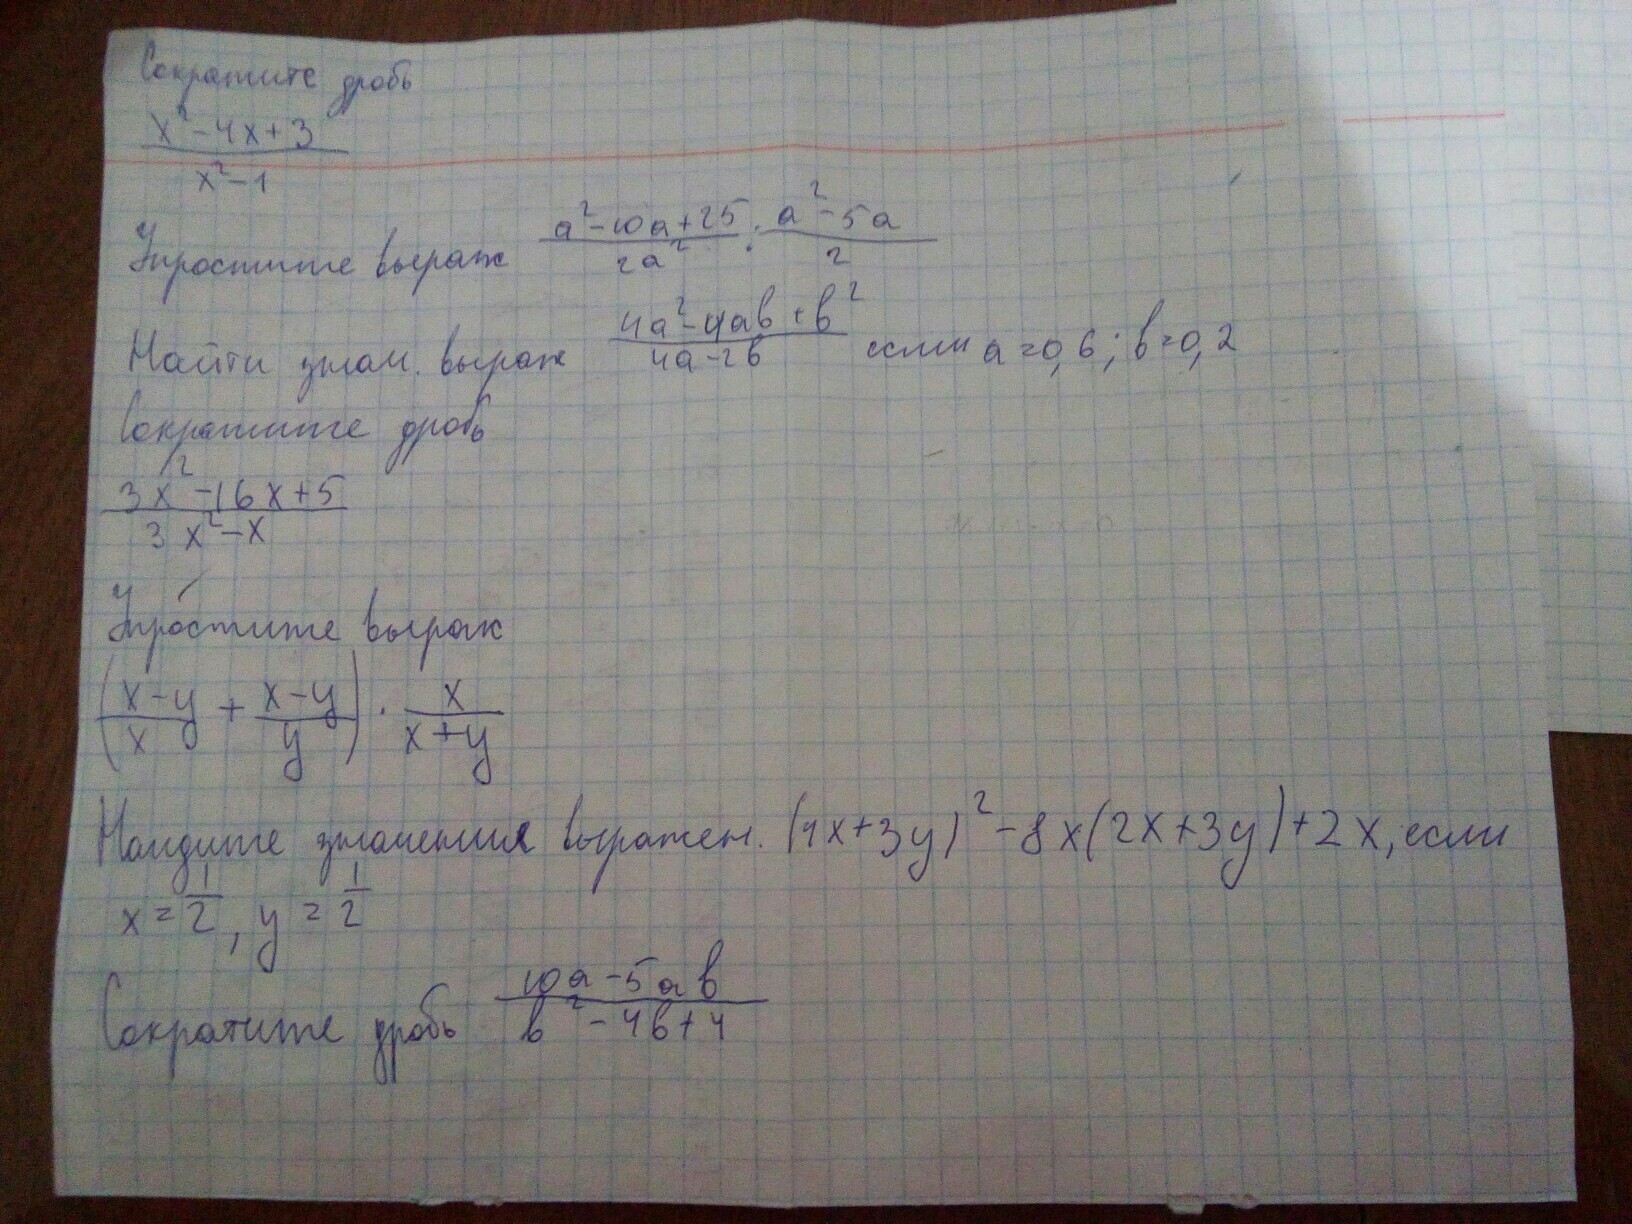 Сократите дробь
x²-4x+3
x²-1
Упростите выраж a²-10a+25 / 2a² : a²-5a / 2
Найти знач. выраж 4a²-4ab+b² / 4a-2b если a=0,6; b=0,2
Сократите дробь
3x²-16x+5
3x²-x
Упростите выраж
(x-y / x + x-y / y) · x / x+y
Найдите значения выражен. (4x+3y)²-8x(2x+3y)+2x, если
x=1/2, y=1/2
Сократите дробь 10a-5ab / b²-4b+4